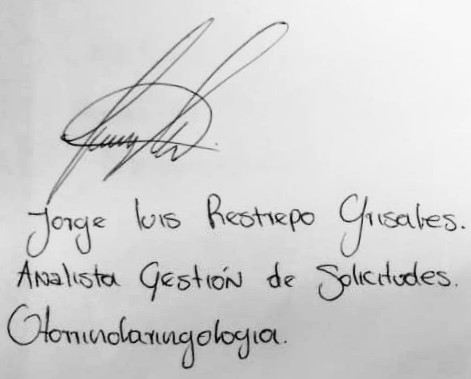 Jorge Luis Restrepo Grisales.
Analista Gestión de Solicitudes.
Otorrinolaringología.